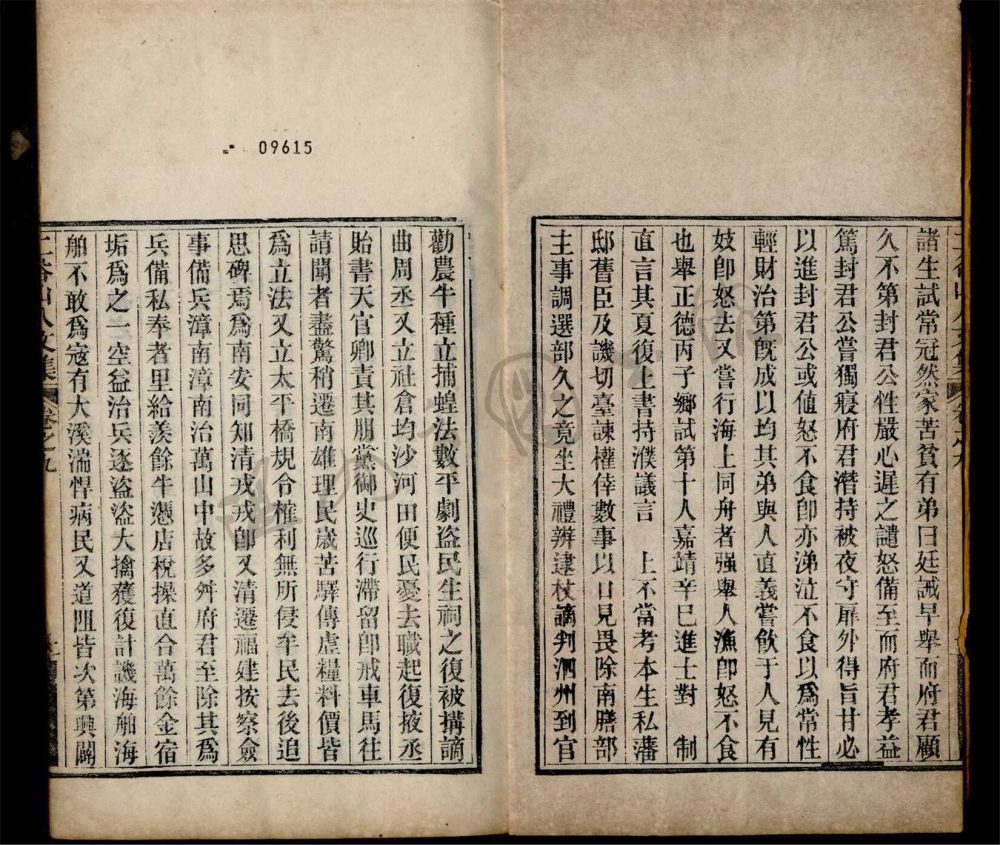 諸生試常冠然家苦貧有弟曰廷誡早舉而府君顧
久不第封君公性嚴心遲之譴怒備至而府君孝益
篤封君公嘗獨寢府君潛持被夜守扉外得旨甘必
以進封君公或値怒不食卽亦涕泣不食以爲常性
輕財治第旣成以均其弟與人直義嘗飮于人見有
妓卽怒去又嘗行海上同舟者强舉人漁卽怒不食
也舉正德丙子鄉試第十人嘉靖辛巳進士對　制
直言其夏復上書持濮議言　上不當考本生私藩
邸舊臣及譏切臺諫權倖數事以口見畏除南膳部
主事調選部久之竟坐大禮辨逮杖謫判泗州到官
09615
勸農牛種立捕蝗法數平劇盜民生祠之復被搆謫
曲周丞又立社倉均沙河田便民憂去職起復掖丞
貽書天官卿責其朋黨御史巡行滯留卽戒車馬往
請聞者盡驚稍遷南雄理民歲苦驛傳虛糧料價皆
爲立法又立太平橋規令榷利無所侵牟民去後追
思碑焉爲南安同知清戎戎卽又清遷福建按察僉
事備兵漳南漳南治萬山中故多舛府君至除其爲
兵備私奉者里給羨餘牛慿店稅操直合萬餘金宿
垢爲之一空益治兵逐盜盜大擒獲復計譏海舶海
舶不敢爲寇有大溪湍悍病民又道阻皆次第興闢
文集
卷之九